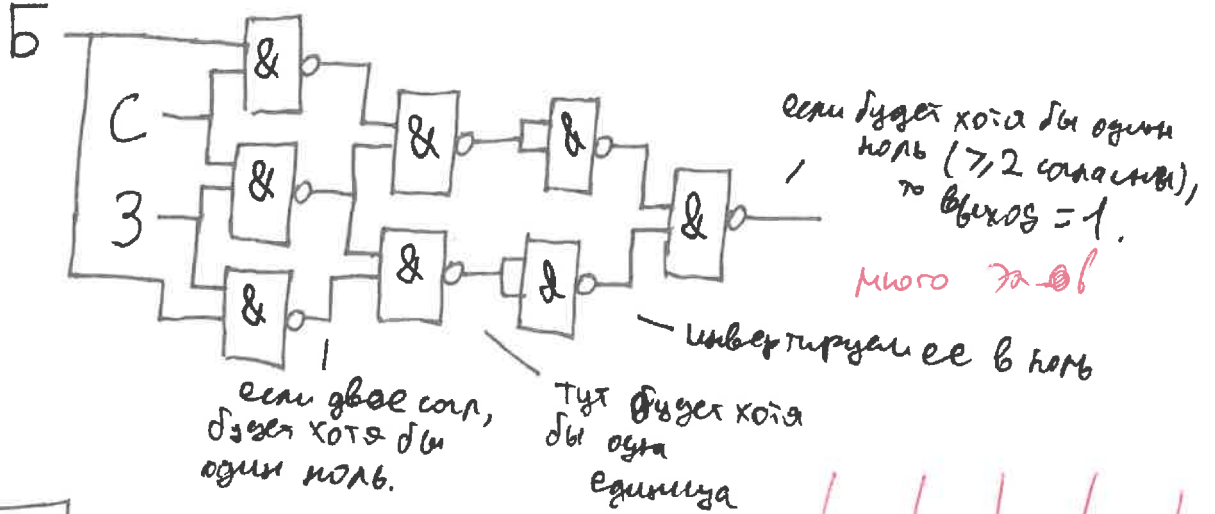 Б
С
З
&
&
&
&
&
&
&
&
если будет хотя бы один
ноль (⩾2 согласны),
то выход = 1.
много эл-ов
инвертируем ее в ноль
если двое согл,
будет хотя бы
один ноль.
тут будет хотя
бы одна
единица